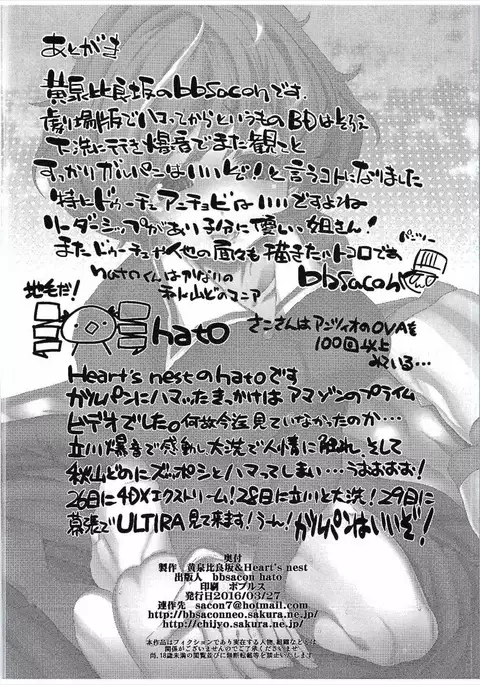 あとがき
黄泉比良坂のbbsaconです。
劇場版でハマってからというものBDはそろえ
下洗に行き爆音でまた観てと
すっかりガルパンはいいぞ!と言うコトになりました
特にドゥーチェアンチョビはいいですよね
リーダーシップがあい子分に優しい姐さん!
またドゥーチェや他の面々も描きたいトコロです
パンツァー
bbsacon
hatoくんはかなりの
秋山どのマニア
地毛だ!
hato
さこさんはアンツィオのOVAを
100回以上
みている…
Heart's nestのhatoです
ガルパンにハマったきっかけはアマゾンのプライム
ビデオでした。何故今迄見ていなかったのか…
立川爆音で感動し大洗で人情に触れ、そして
秋山どのにズッポシとハマってしまい…うおおおお!
26日に4DXエクストリーム!28日に立川と大洗!29日に
幕張でULTIRA見て来ます!うん!ガルパンはいいぞ!
奥付
製作 黄泉比良坂&Heart's nest
出版人 bbsacon hato
印刷 ポプルス
発行日2016/03/27
連作先 sacon7@hotmail.com
http://bbsaconneo.sakura.ne.jp/
http://chijyo.sakura.ne.jp/
本作品はフィクションであり実在する人物、組織などとは
関係がございませんのでご了承くださいませ
尚、18歳未満の閲覧並びに無断転載等と禁止いたします